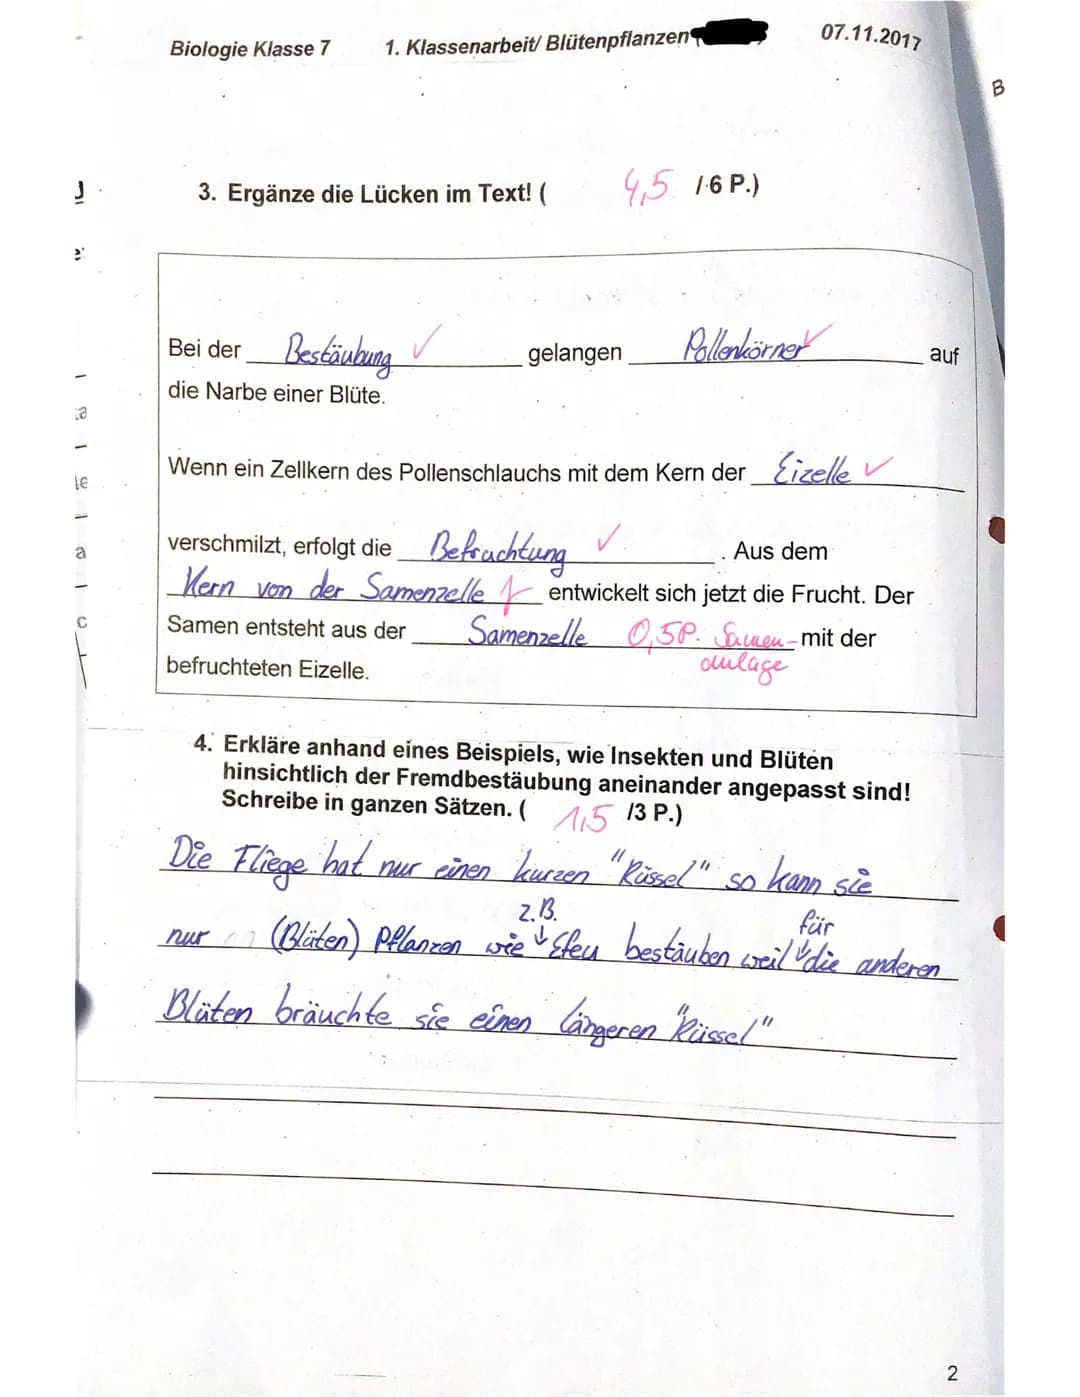 Biologie Klasse 7 1. Klassenarbeit/ Blütenpflanzen 07.11.2017
B
3. Ergänze die Lücken im Text! ( 4,5 / 6 P.)
Bei der Bestäubung ✓ gelangen Pollenkörner ✓ auf
die Narbe einer Blüte.
Wenn ein Zellkern des Pollenschlauchs mit dem Kern der Eizelle ✓
verschmilzt, erfolgt die Befruchtung ✓ . Aus dem
Kern von der Samenzelle entwickelt sich jetzt die Frucht. Der
Samen entsteht aus der Samenzelle 0,5P. Samen- mit der
anlage
befruchteten Eizelle.
4. Erkläre anhand eines Beispiels, wie Insekten und Blüten
hinsichtlich der Fremdbestäubung aneinander angepasst sind!
Schreibe in ganzen Sätzen. ( 1,5 /3 P.)
Die Fliege hat nur einen kurzen "Rüssel" so kann sie
z.B. für
nur (Blüten) Pflanzen wie Efeu bestäuben weil die anderen
Blüten bräuchte sie einen längeren "Rüssel"
2